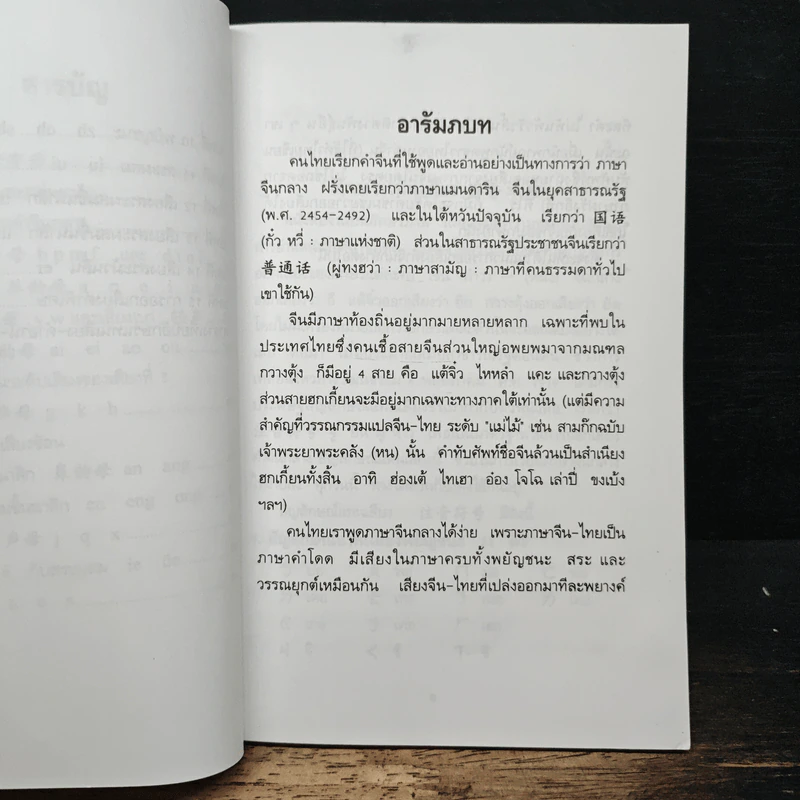 อารัมภบท
คนไทยเรียกคำจีนที่ใช้พูดและอ่านอย่างเป็นทางการว่า ภาษา
จีนกลาง ฝรั่งเคยเรียกว่าภาษาแมนดาริน จีนในยุคสาธารณรัฐ
(พ.ศ. 2454-2492) และในใต้หวันปัจจุบัน เรียกว่า 国语
(กั๋ว หวี่ : ภาษาแห่งชาติ) ส่วนในสาธารณรัฐประชาชนจีนเรียกว่า
普通话 (ผู่ทงฮว่า : ภาษาสามัญ : ภาษาที่คนธรรมดาทั่วไป
เขาใช้กัน)
จีนมีภาษาท้องถิ่นอยู่มากมายหลายหลาก เฉพาะที่พบใน
ประเทศไทยซึ่งคนเชื้อสายจีนส่วนใหญ่อพยพมาจากมณฑล
กวางตุ้ง ก็มีอยู่ 4 สาย คือ แต้จิ๋ว ไหหลำ แคะ และกวางตุ้ง
ส่วนสายฮกเกี้ยนจะมีอยู่มากเฉพาะทางภาคใต้เท่านั้น (แต่มีความ
สำคัญที่วรรณกรรมแปลจีน-ไทย ระดับ "แม่ไม้" เช่น สามก๊กฉบับ
เจ้าพระยาพระคลัง (หน) นั้น คำทับศัพท์ชื่อจีนล้วนเป็นสำเนียง
ฮกเกี้ยนทั้งสิ้น อาทิ ฮ่องเต้ ไทเฮา อ๋อง โจโฉ เล่าปี่ ขงเบ้ง
ฯลฯ)
คนไทยเราพูดภาษาจีนกลางได้ง่าย เพราะภาษาจีน-ไทยเป็น
ภาษาคำโดด มีเสียงในภาษาครบทั้งพยัญชนะ สระ และ
วรรณยุกต์เหมือนกัน เสียงจีน-ไทยที่เปล่งออกมาทีละพยางค์